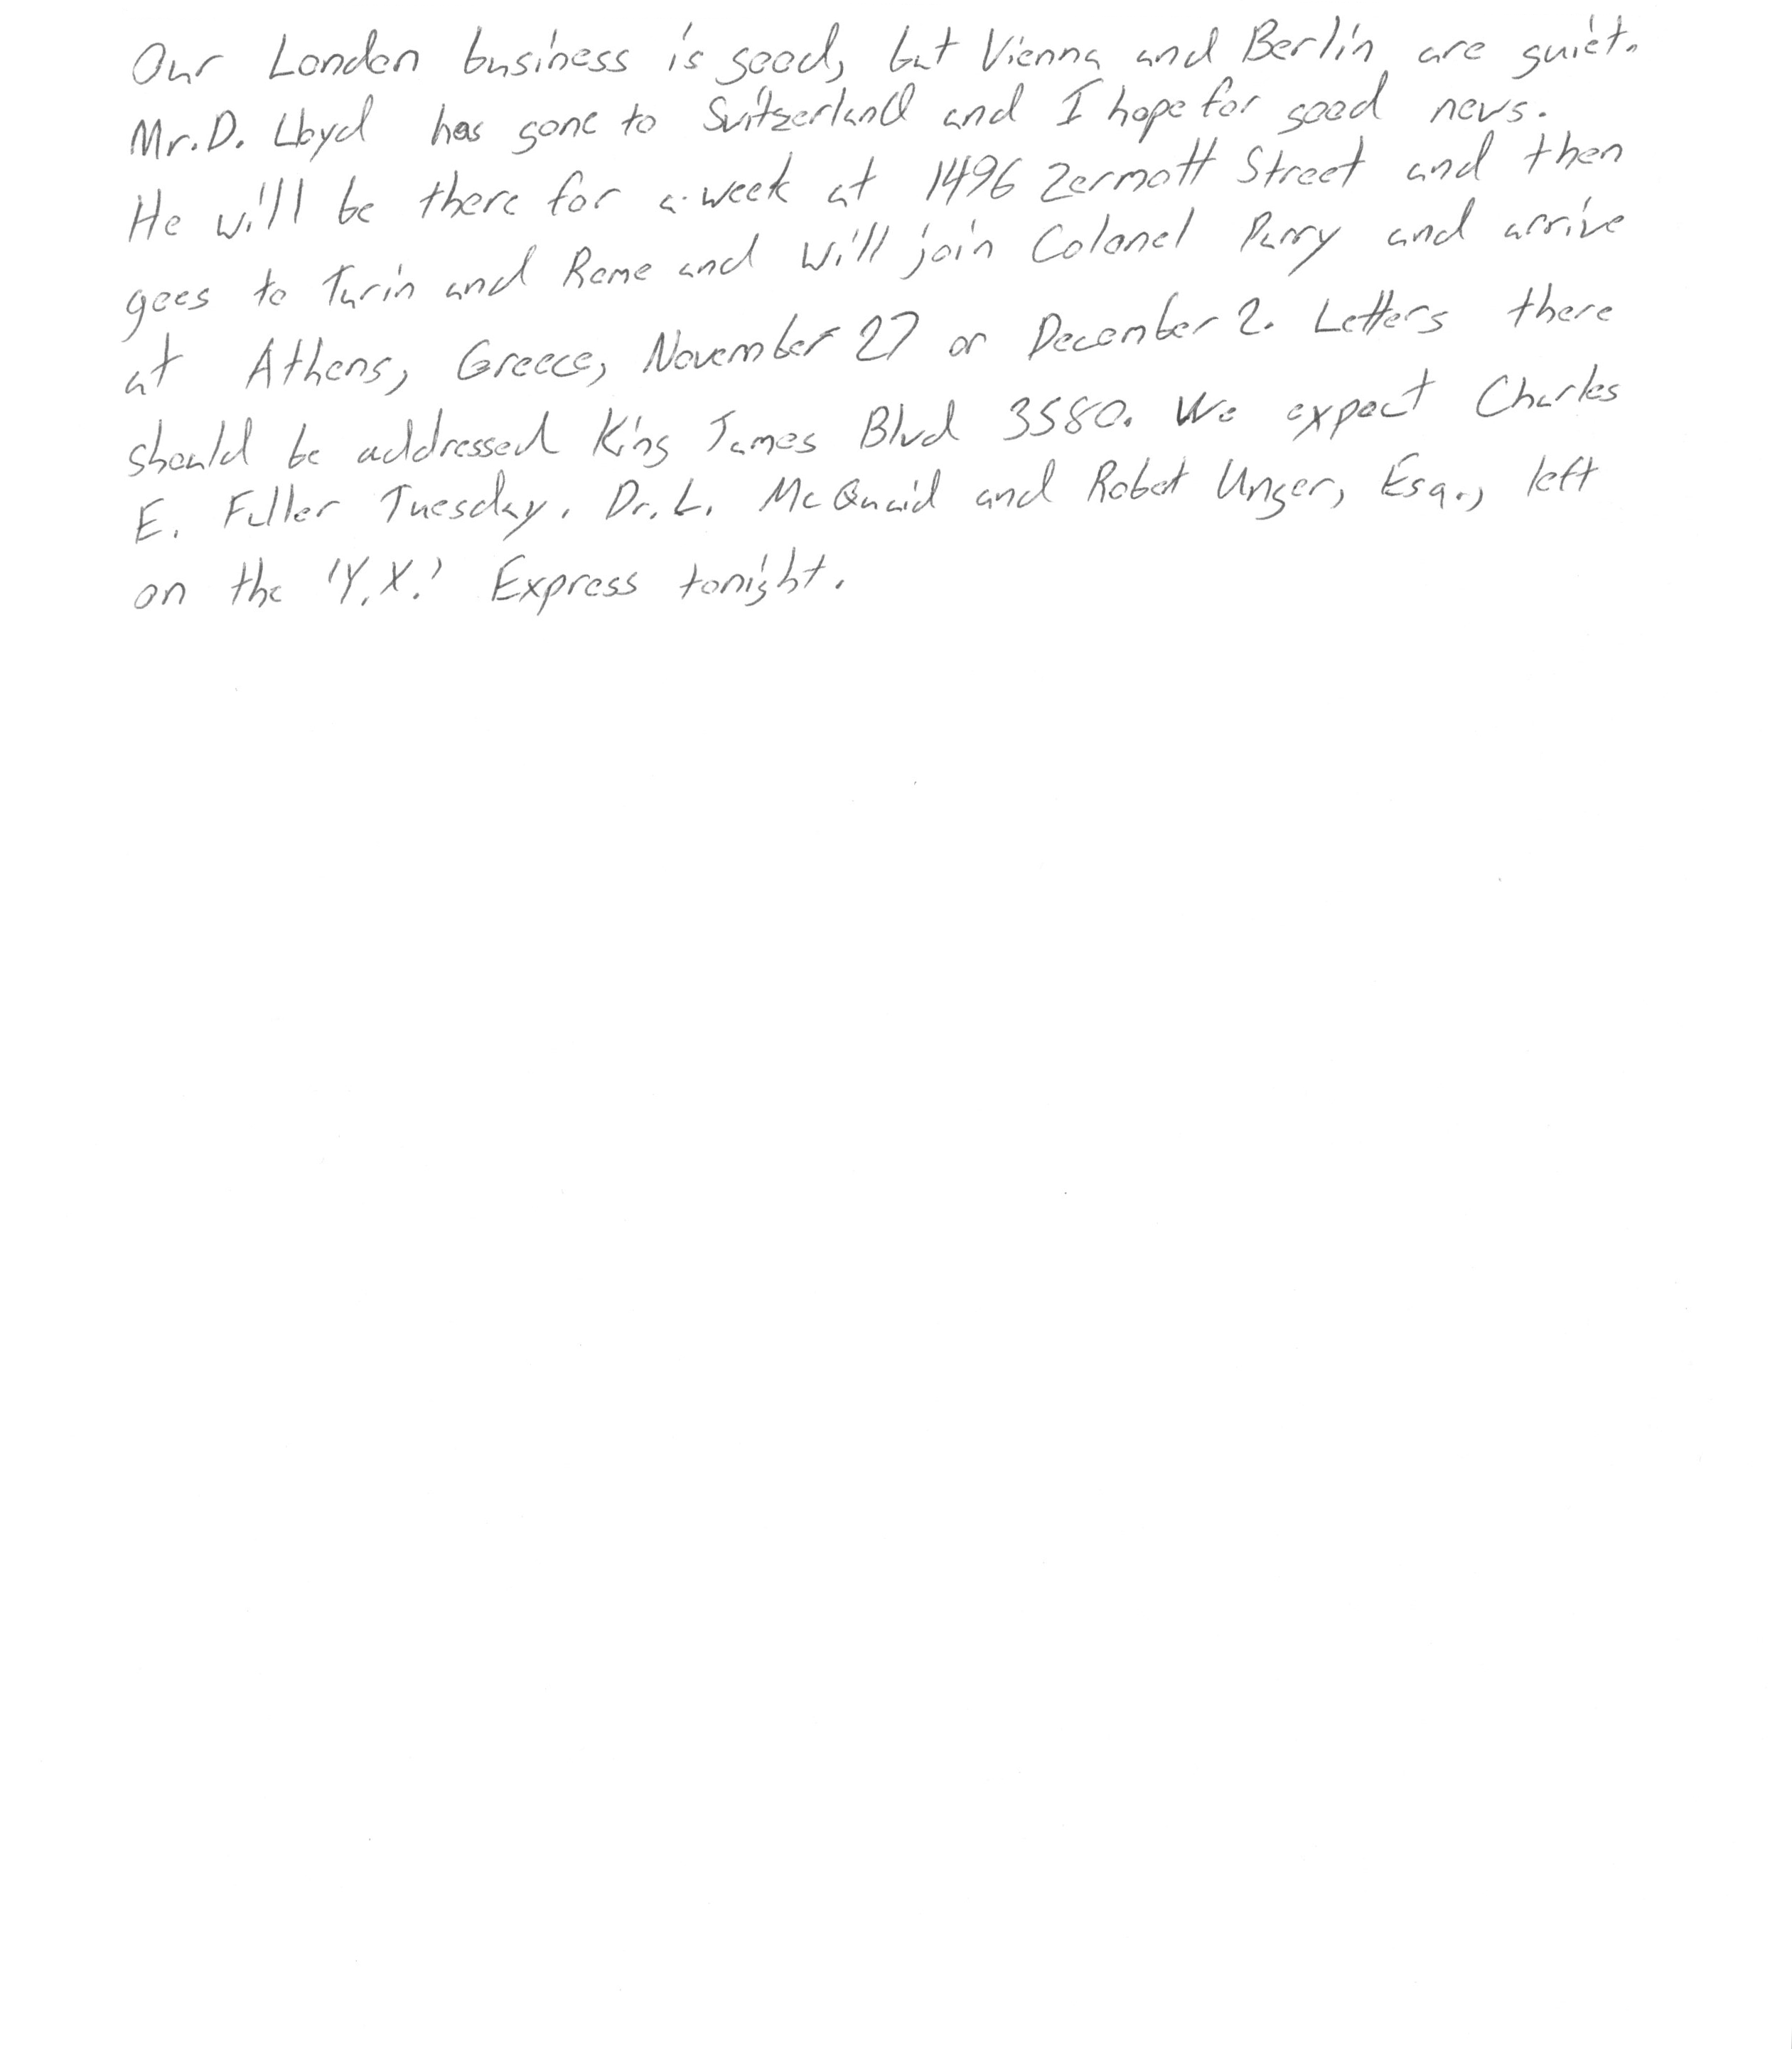 Our London business is good, but Vienna and Berlin are quiet.
Mr. D. Lloyd has gone to Switzerland and I hope for good news.
He will be there for a week at 1496 Zermott Street and then
goes to Turin and Rome and will join Colonel Parry and arrive
at Athens, Greece, November 27 or December 2. Letters there
should be addressed King James Blvd 3580. We expect Charles
E. Fuller Tuesday. Dr. L. McQuaid and Robert Unger, Esq., left
on the 'Y.X.' Express tonight.